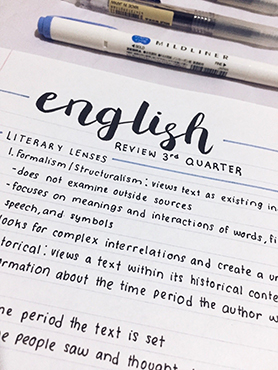 MILDLINER
english
REVIEW 3rd QUARTER
LITERARY LENSES
1. formalism/structuralism: views text as existing in
-does not examine outside sources
-focuses on meanings and interactions of words,
speech, and symbols
looks for complex interrelations and create a
torical: views a text within its historical
ormation about the time period the author
me period the text is set
e people saw and thought